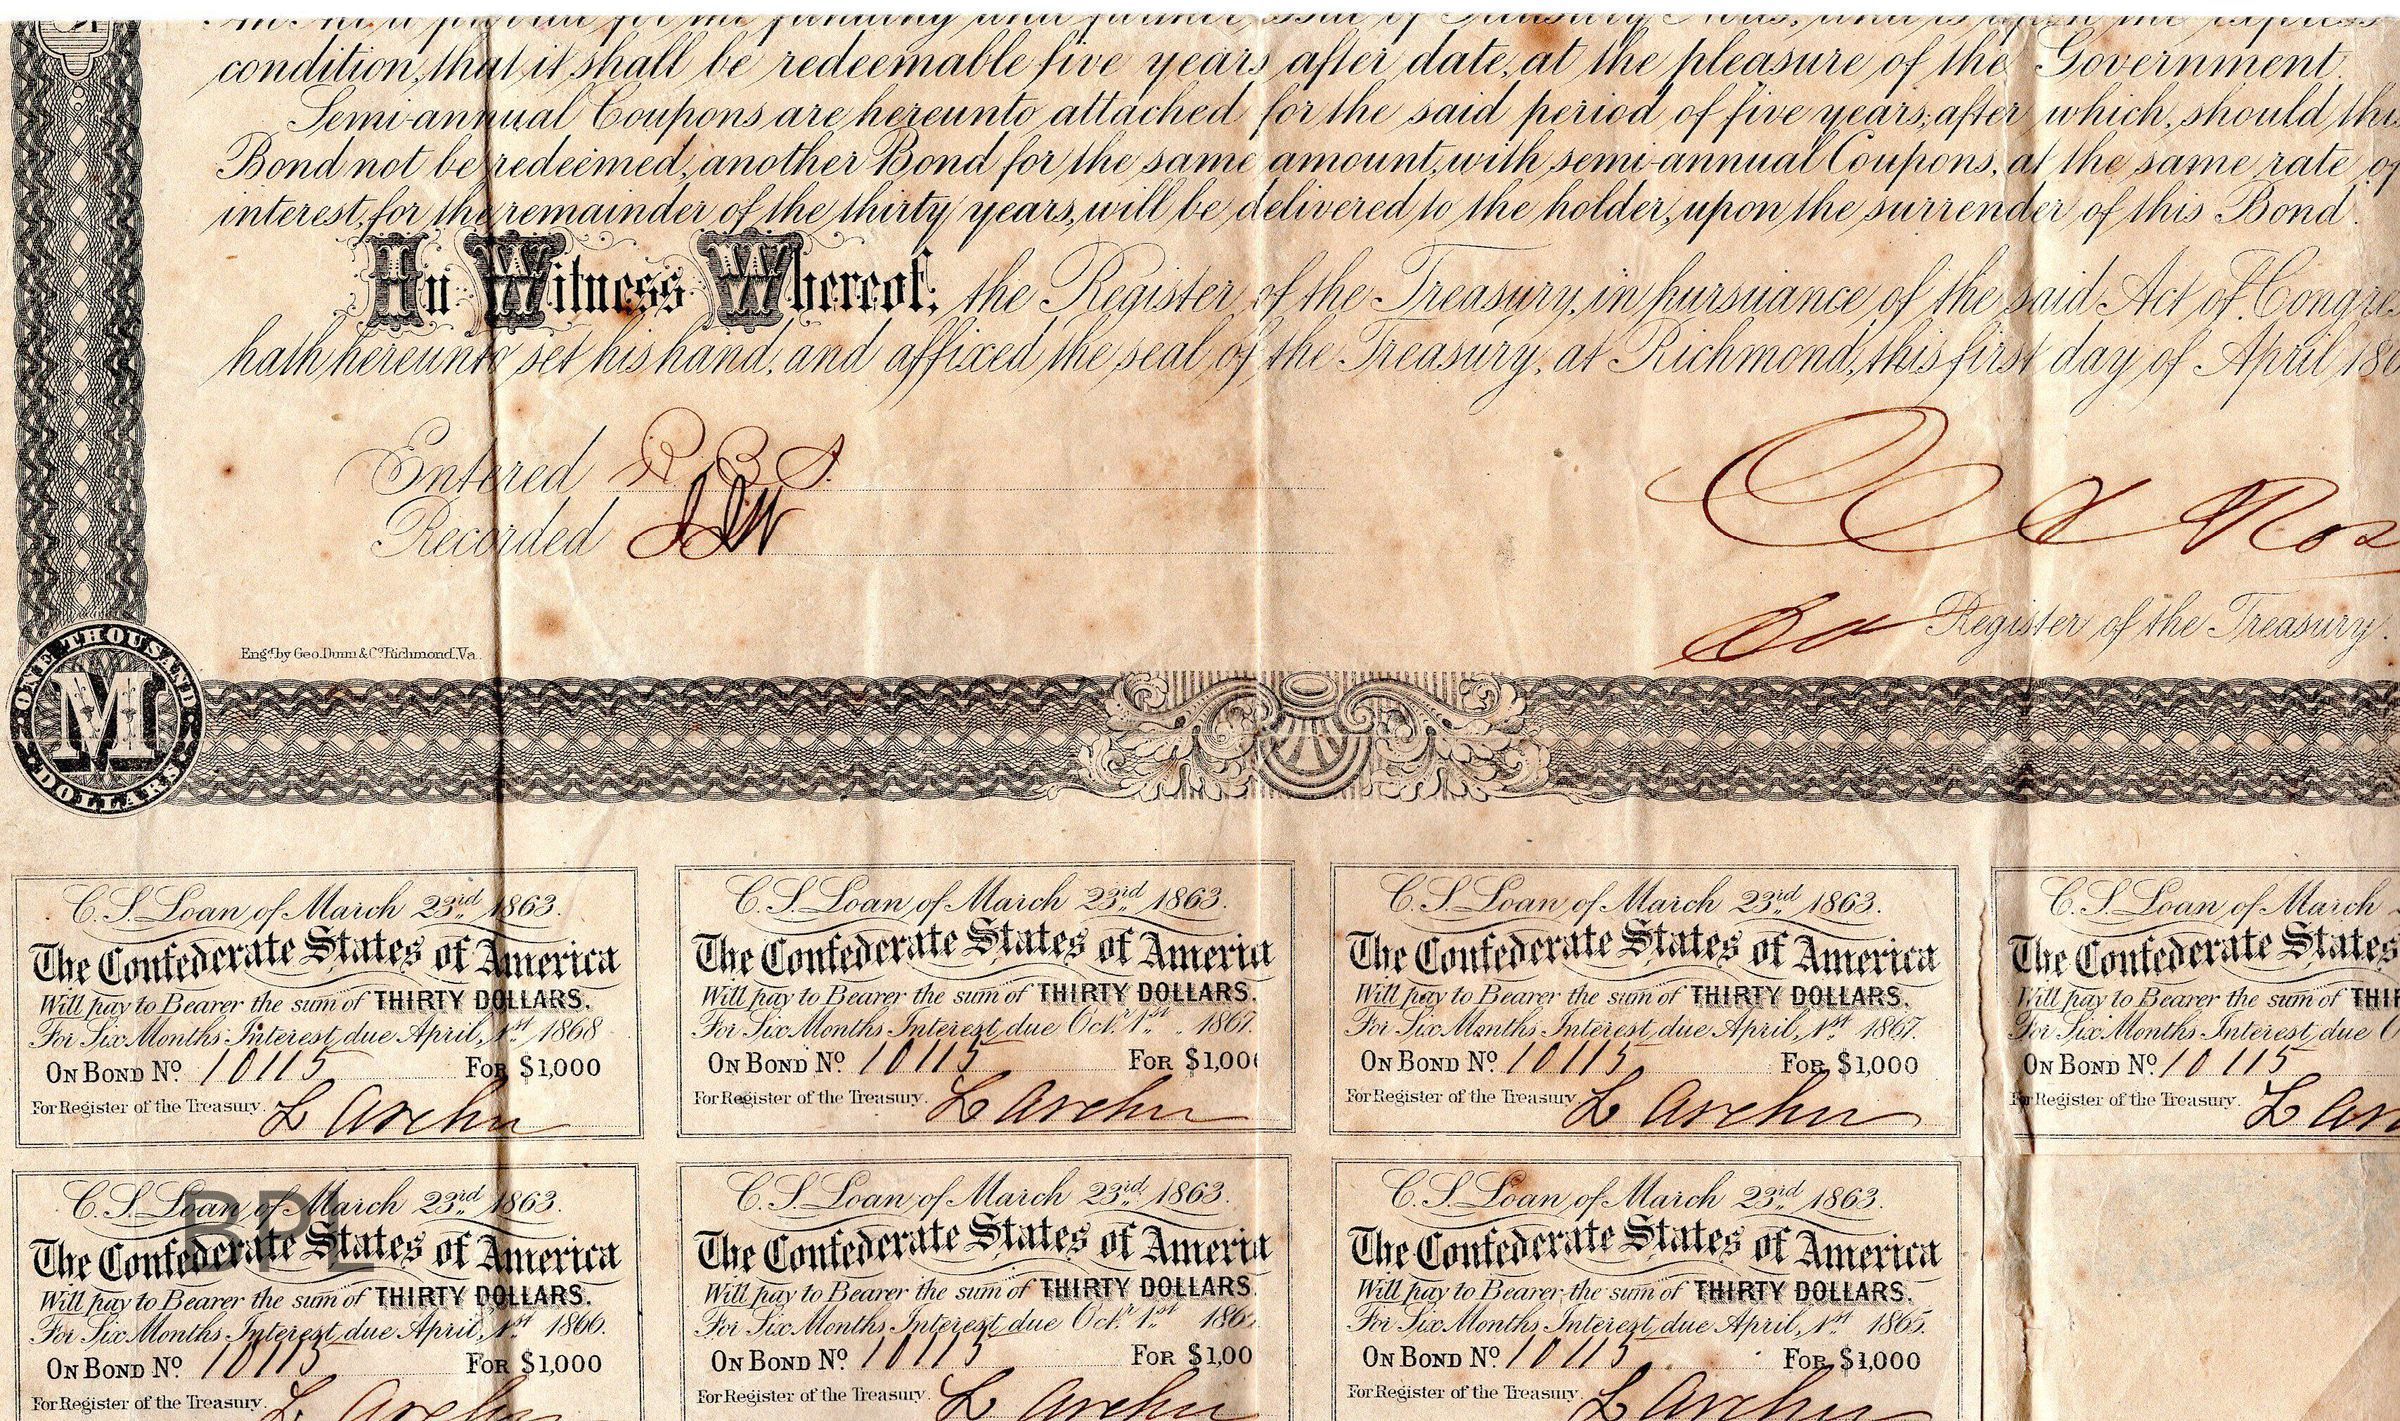 condition, that it shall be redeemable five years after date, at the pleasure of the Government.
Semi-annual Coupons are hereunto attached for the said period of five years, after which, should this
Bond not be redeemed, another Bond for the same amount, with semi-annual Coupons, at the same rate of
interest, for the remainder of the thirty years, will be delivered to the holder, upon the surrender of this Bond.
In Witness Whereof, the Register of the Treasury, in pursuance of the said Act of Congre
hath hereunto set his hand, and affixed the seal of the Treasury, at Richmond, this first day of April 186
Entered
Recorded
Register of the Treasury.
Engd. by Geo. Dunn & Co. Richmond, Va.
ONE THOUSAND
M
DOLLARS
C. S. Loan of March 23rd. 1863.
The Confederate States of America
Will pay to Bearer the sum of THIRTY DOLLARS.
For Six Months Interest, due April, 1st. 1868
ON BOND No. 10115 FOR $1,000
For Register of the Treasury. L Archer
C. S. Loan of March 23rd. 1863.
The Confederate States of America
Will pay to Bearer the sum of THIRTY DOLLARS.
For Six Months Interest, due Octr. 1st. 1867.
ON BOND No. 10115 FOR $1,00
For Register of the Treasury. L Archer
C. S. Loan of March 23rd. 1863.
The Confederate States of America
Will pay to Bearer the sum of THIRTY DOLLARS.
For Six Months Interest, due April, 1st. 1867.
ON BOND No. 10115 FOR $1,000
For Register of the Treasury. L Archer
C. S. Loan of March
The Confederate States
Will pay to Bearer the sum of THIR
For Six Months Interest, due O
ON BOND No. 10115
For Register of the Treasury. L Ar
C. S. Loan of March 23rd. 1863.
The Confederate States of America
Will pay to Bearer the sum of THIRTY DOLLARS.
For Six Months Interest, due April, 1st. 1866.
ON BOND No. 10115 FOR $1,000
For Register of the Treasury. L Archer
BPL
C. S. Loan of March 23rd. 1863.
The Confederate States of America
Will pay to Bearer the sum of THIRTY DOLLARS.
For Six Months Interest, due Octr. 1st. 186
ON BOND No. 10115 FOR $1,00
For Register of the Treasury. L Archer
C. S. Loan of March 23rd. 1863.
The Confederate States of America
Will pay to Bearer the sum of THIRTY DOLLARS.
For Six Months Interest, due April, 1st. 1865.
ON BOND No. 10115 FOR $1,000
For Register of the Treasury. L Archer